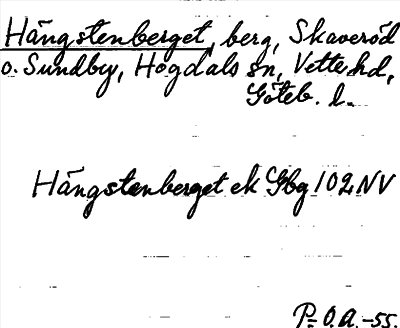 Hängstenberget, berg, Skaveröd
o. Sundby, Hogdals sn, Vette hd,
Göteb. l.
Hängstenberget ek Gbg 102 NV
P.O.A. -55.